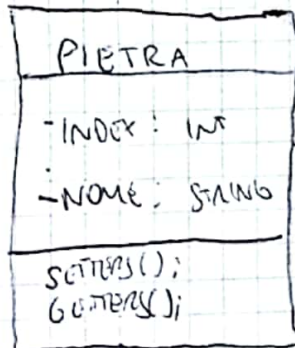 PIETRA
-INDEX: INT
-NOME: STRING
SETTERS();
GETTERS();